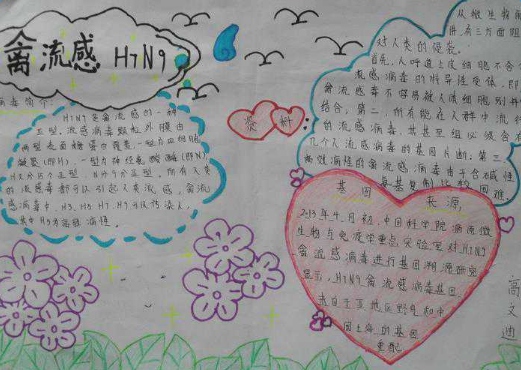 禽流感 H7N9
H7N9是禽流感的一种
亚型。流感病毒颗粒外膜由
两型表面糖蛋白覆盖，一型为血细胞
凝集(即H)，一型为神经氨酸酶(即N)
H又分15个亚型，N分9个亚型。所有人类
的流感病毒都可以引起人类流感，禽流
感病毒中，H5、H7、H9可以传染人，
其中H5为高致病性。
资料
对人类的侵袭。
首先，人呼吸上皮细胞不含
流感病毒的特异性受体，即
禽流感毒不容易被人体细胞识别并
结合；第二，所有能在人群中流行
的流感病毒，其基至组必须含
几个人流感病毒的基因片断；第三，
高致病性的禽流感病毒由于含碱性
复制比较困难。
基因 来源
2013年4月初，中国科学院病原微
生物与免疫学重点实验室对H7N9
禽流感病毒进行基因溯源研究
显示，H7N9禽流感病毒基因
来自于东亚地区野鸟和中
国上海的基因
重配
高文迪